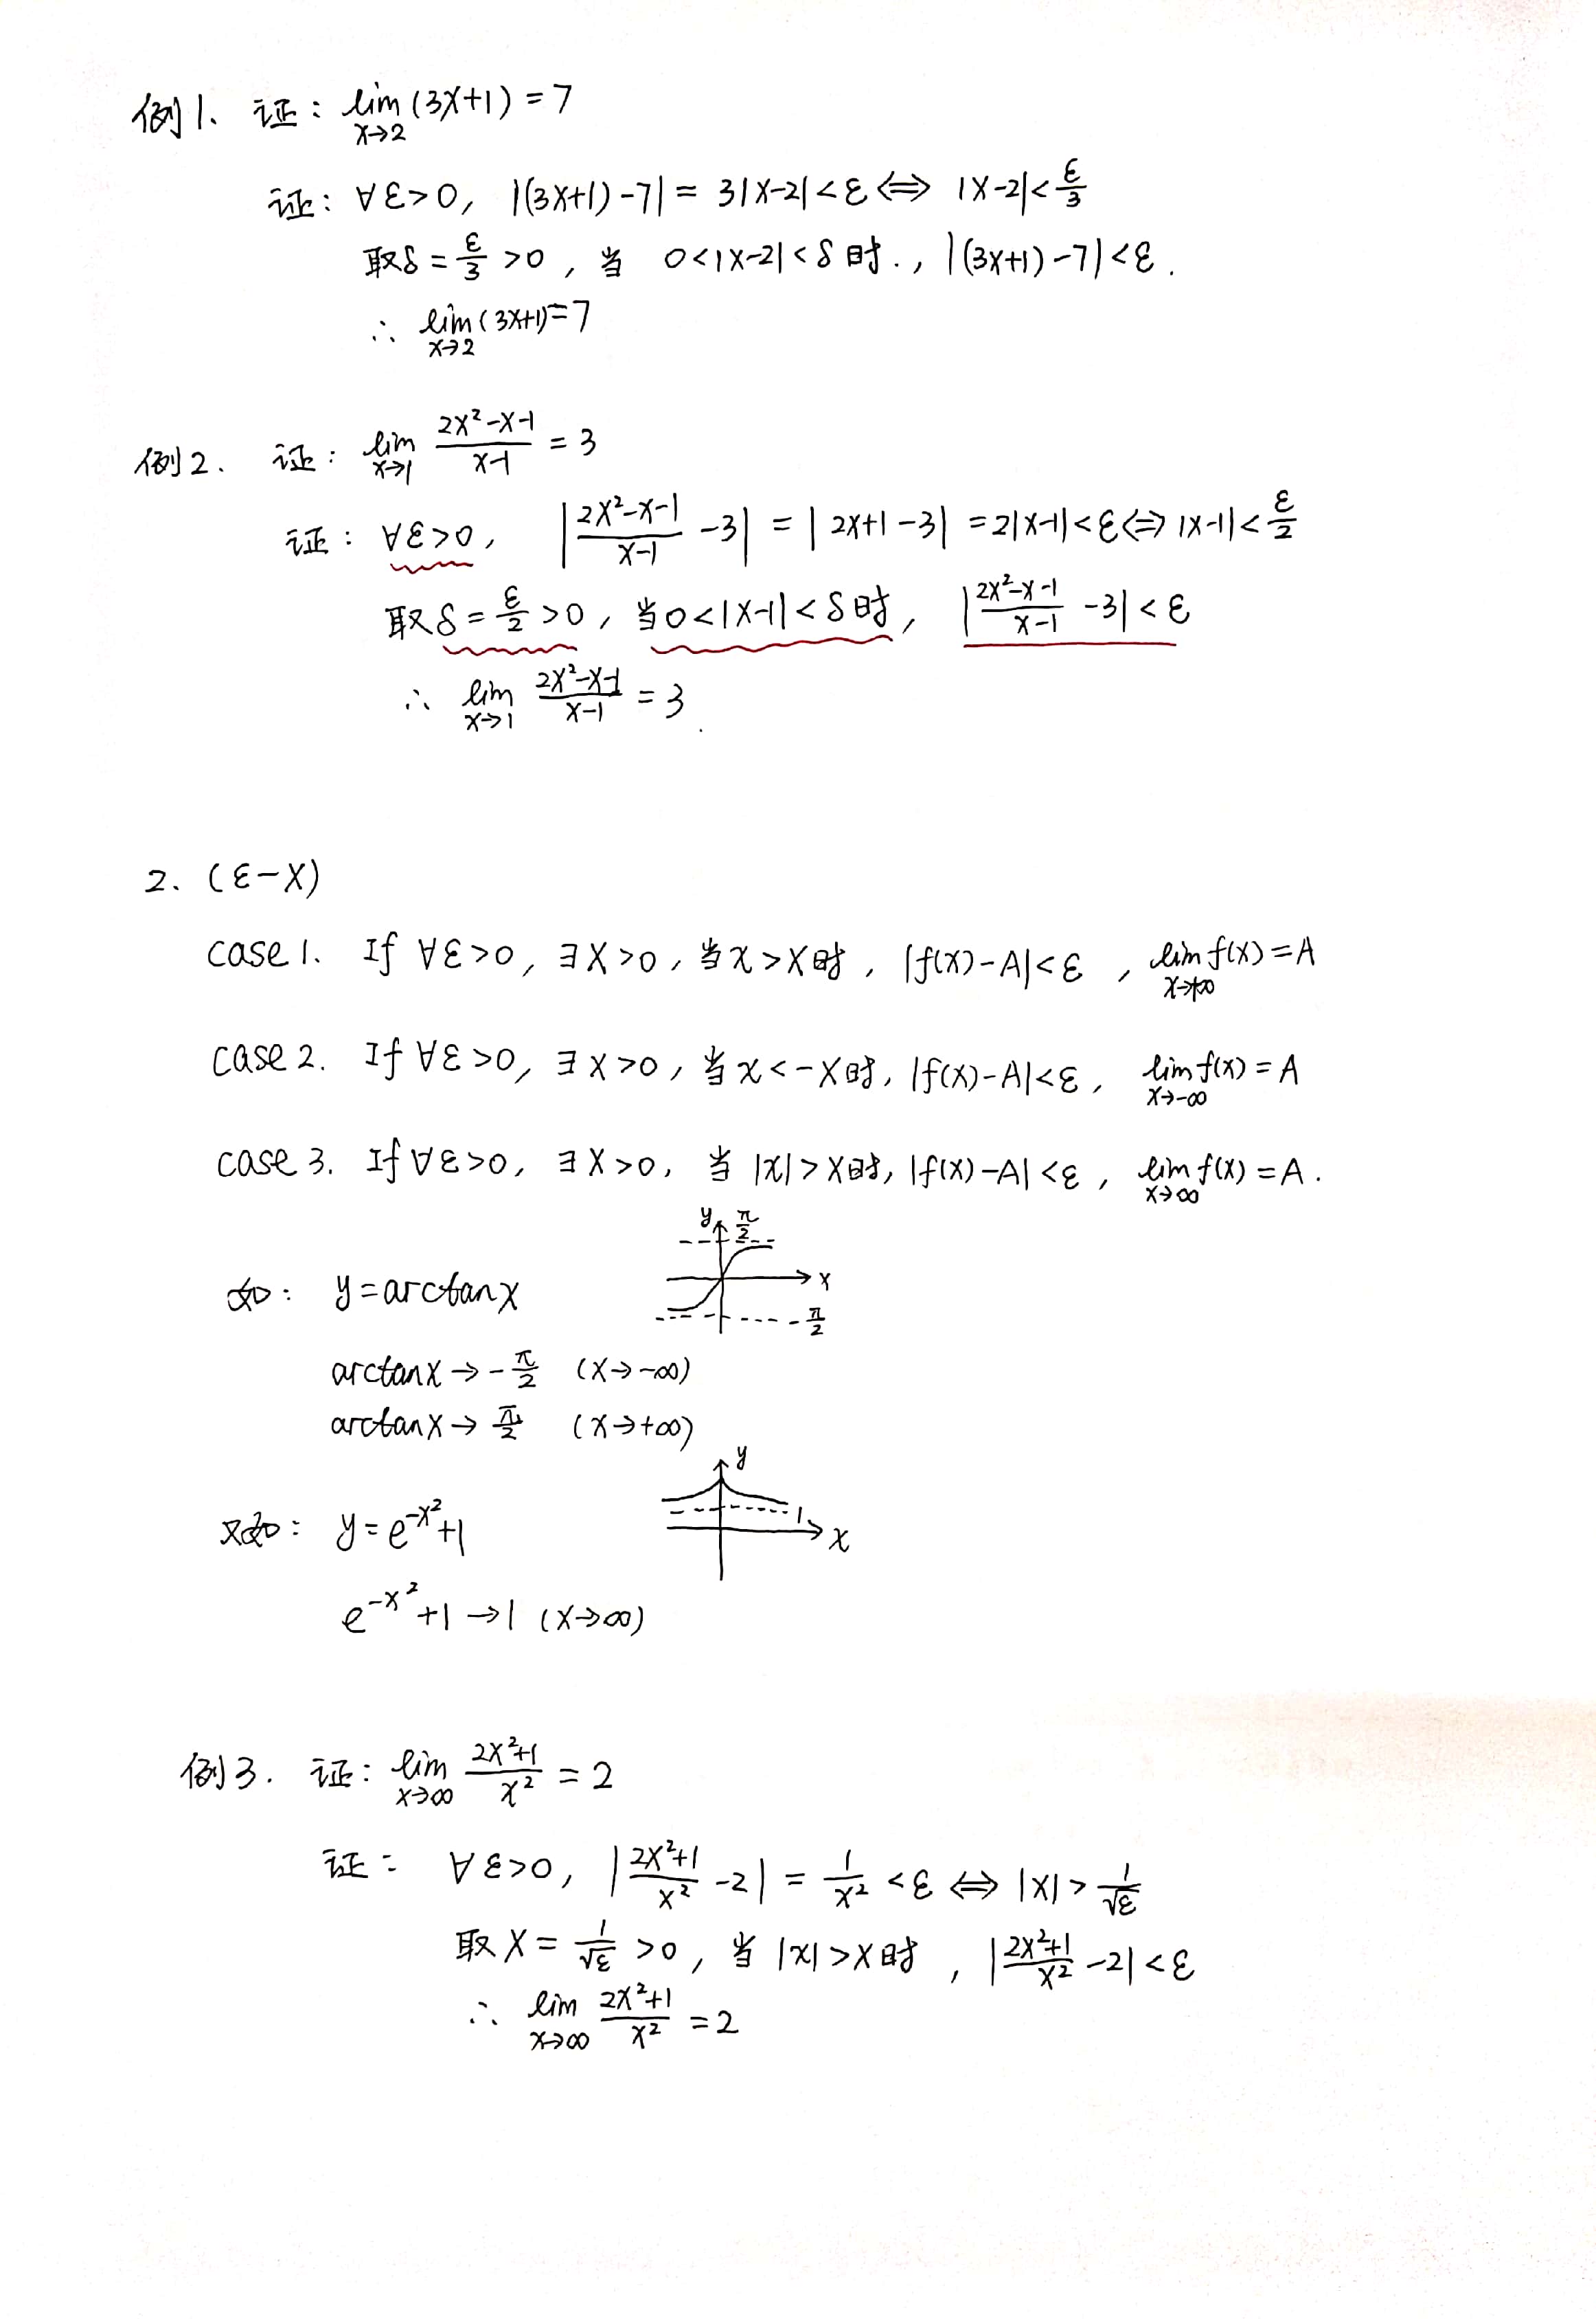 例1、证：lim_{x→2} (3x+1) = 7
证：∀ε>0, |(3x+1)-7| = 3|x-2| < ε ⟺ |x-2| < ε/3
取δ = ε/3 > 0, 当 0<|x-2|<δ时., |(3x+1)-7|<ε.
∴ lim_{x→2} (3x+1) = 7
例2. 证：lim_{x→1} (2x²-x-1)/(x-1) = 3
证：∀ε>0, |(2x²-x-1)/(x-1) - 3| = |2x+1-3| = 2|x-1| < ε ⟺ |x-1| < ε/2
取δ = ε/2 > 0, 当0<|x-1|<δ时, |(2x²-x-1)/(x-1) - 3| < ε
∴ lim_{x→1} (2x²-x-1)/(x-1) = 3.
2、(ε-X)
case 1. If ∀ε>0, ∃X>0, 当x>X时, |f(x)-A|<ε, lim_{x→+∞} f(x) = A
case 2. If ∀ε>0, ∃X>0, 当x<-X时, |f(x)-A|<ε, lim_{x→-∞} f(x) = A
case 3. If ∀ε>0, ∃X>0, 当|x|>X时, |f(x)-A|<ε, lim_{x→∞} f(x) = A.
y π/2
如: y=arctanx
x
-π/2
arctanx → -π/2 (x→-∞)
arctanx → π/2 (x→+∞)
y
又如: y=e^{-x²}+1
1
x
e^{-x²}+1 → 1 (x→∞)
例3. 证: lim_{x→∞} (2x²+1)/x² = 2
证: ∀ε>0, |(2x²+1)/x² - 2| = 1/x² < ε ⟺ |x| > 1/√ε
取X = 1/√ε > 0, 当|x|>X时, |(2x²+1)/x² - 2| < ε
∴ lim_{x→∞} (2x²+1)/x² = 2